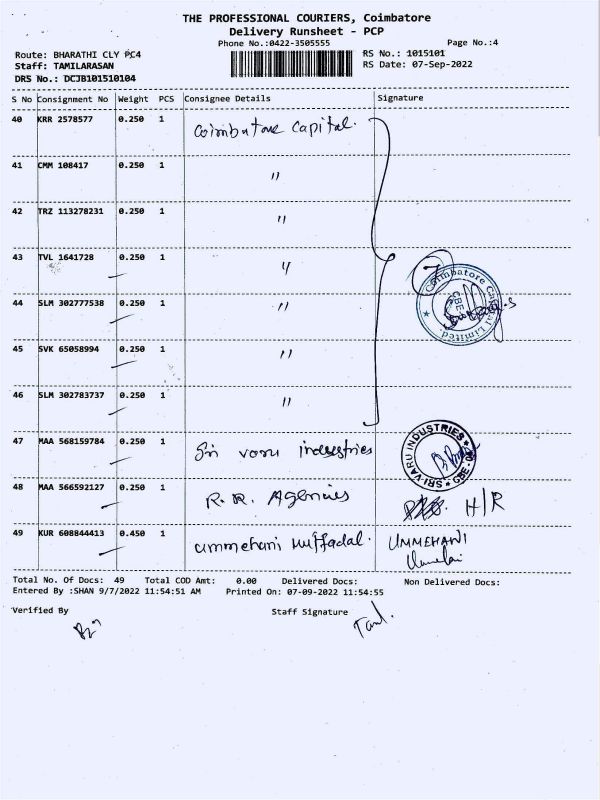 THE PROFESSIONAL COURIERS, Coimbatore
Delivery Runsheet - PCP
Phone No.:0422-3505555 Page No.:4
Route: BHARATHI CLY PC4 RS No.: 1015101
Staff: TAMILARASAN RS Date: 07-Sep-2022
DRS No.: DCJB101510104
S No Consignment No Weight PCS Consignee Details Signature
40 KRR 2578577 0.250 1 Coimbatore Capital.
41 CMM 108417 0.250 1 "
42 TRZ 113278231 0.250 1 "
43 TVL 1641728 0.250 1 "
7
Coimbatore Capital Limited. CBE
44 SLM 302777538 0.250 1 "
45 SVK 65058994 0.250 1 "
46 SLM 302783737 0.250 1 "
47 MAA 568159784 0.250 1 Sri varu industries
SRI VARU INDUSTRIES * CBE
48 MAA 566592127 0.250 1 R.R. Agencies H/R
49 KUR 608844413 0.450 1 ummehani Muffadal. UMMEHANI
Total No. Of Docs: 49 Total COD Amt: 0.00 Delivered Docs: Non Delivered Docs:
Entered By :SHAN 9/7/2022 11:54:51 AM Printed On: 07-09-2022 11:54:55
Verified By Staff Signature